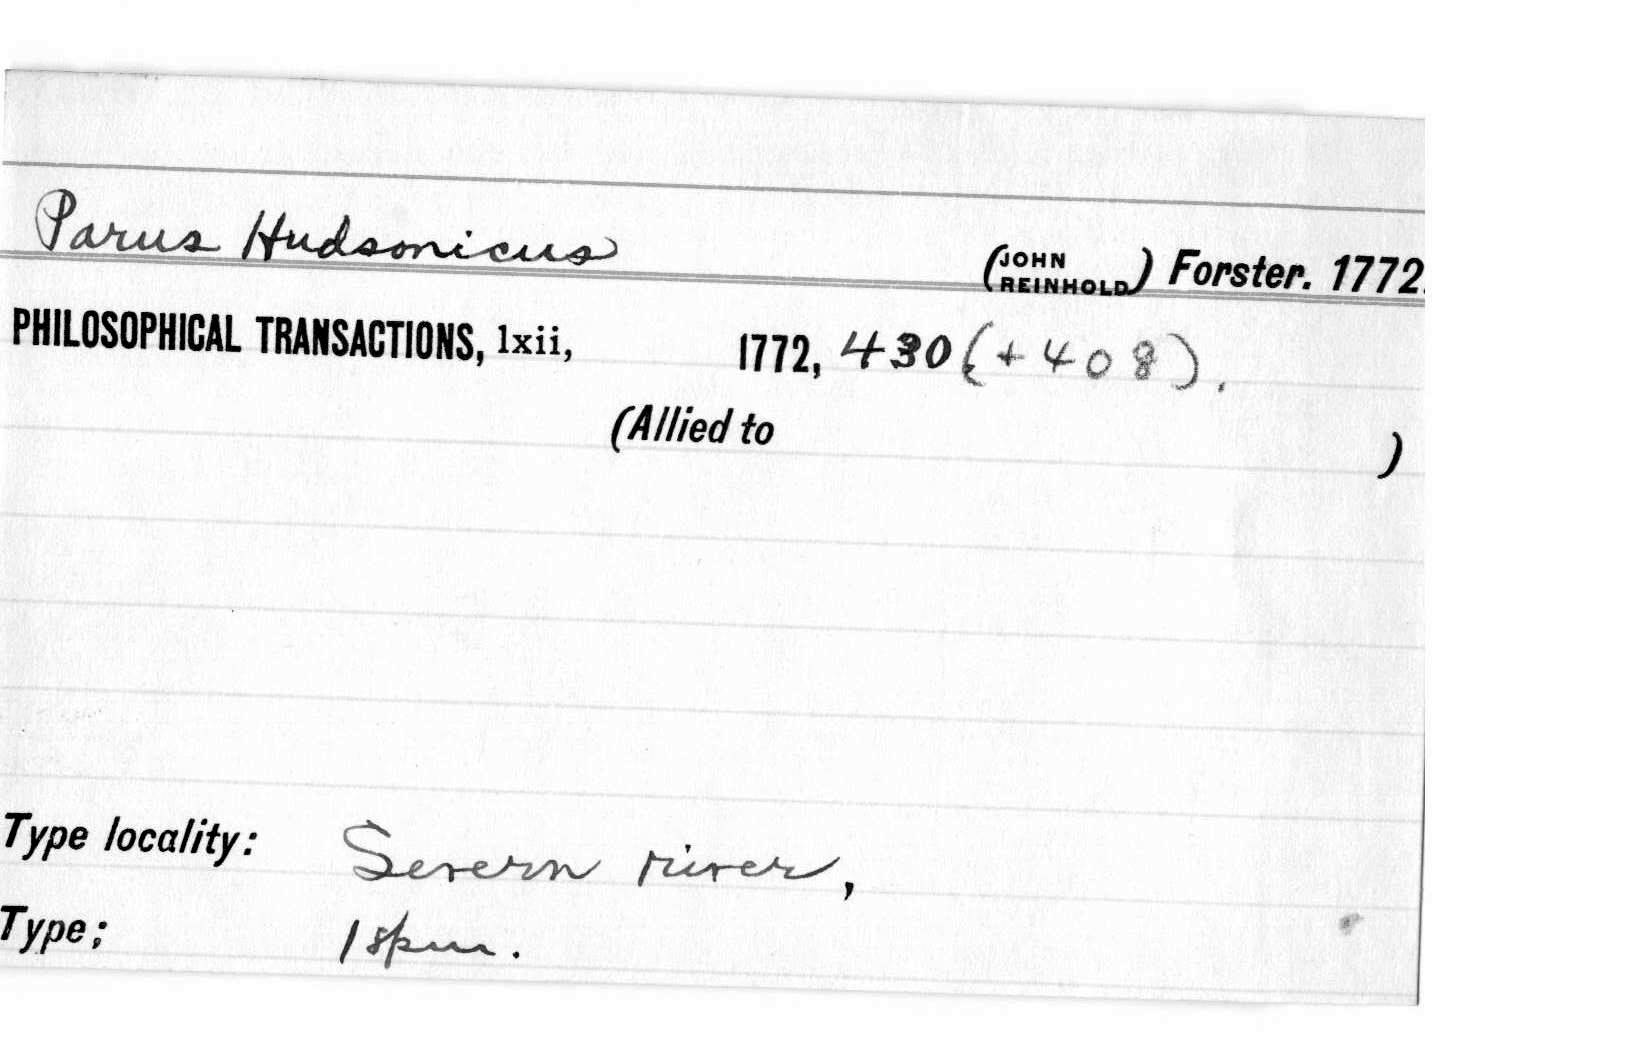 Parus Hudsonicus (JOHN REINHOLD) Forster. 1772.
PHILOSOPHICAL TRANSACTIONS, lxii, 1772, 430 (+ 408).
(Allied to )
Type locality: Severn river,
Type; 1 spm.